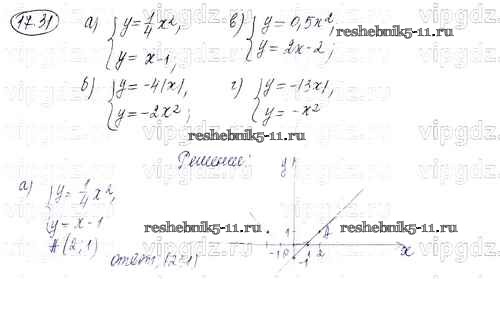 17.31 а) { y = 1/4 x², y = x-1;
в) { y = 0,5x², y = 2x-2;
б) { y = -4|x|, y = -2x²;
г) { y = -|3x|, y = -x²
reshebnik5-11.ru
reshebnik5-11.ru
Решение:
а) { y = 1/4 x², y = x-1
A (2; 1)
ответ: (2; 1)
y
1
A
-1 0 1 2 x
-1
reshebnik5-11.ru
reshebnik5-11.ru
vipgdz.ru